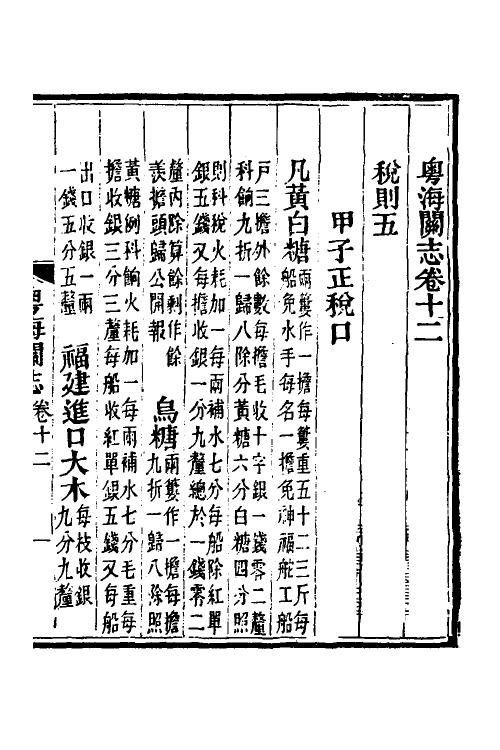 粵海關志卷十二
稅則五
甲子正稅口
凡黃白糖兩簍作一擔每簍重五十二三斤每
船免水手每名一擔免神福舵工船
戸三擔外餘數每擔毛收十字銀一錢零二釐
科餉九折一歸八除分黃糖六分白糖四分照
則科稅火耗加一每兩補水七分每船除紅單
銀五錢又每擔收銀一分九釐總於一錢零二
釐內除算餘剩作餘
羨擔頭歸公開報
烏糖兩簍作一擔每擔
九折一歸八除照
黃糖例科餉火耗加一每兩補水七分毛重每
擔收銀三分三釐每船收紅單銀五錢又每船
出口收銀一兩
一錢五分五釐
福建進口大木每枝收銀
九分九釐
粵海關志
卷十二
一